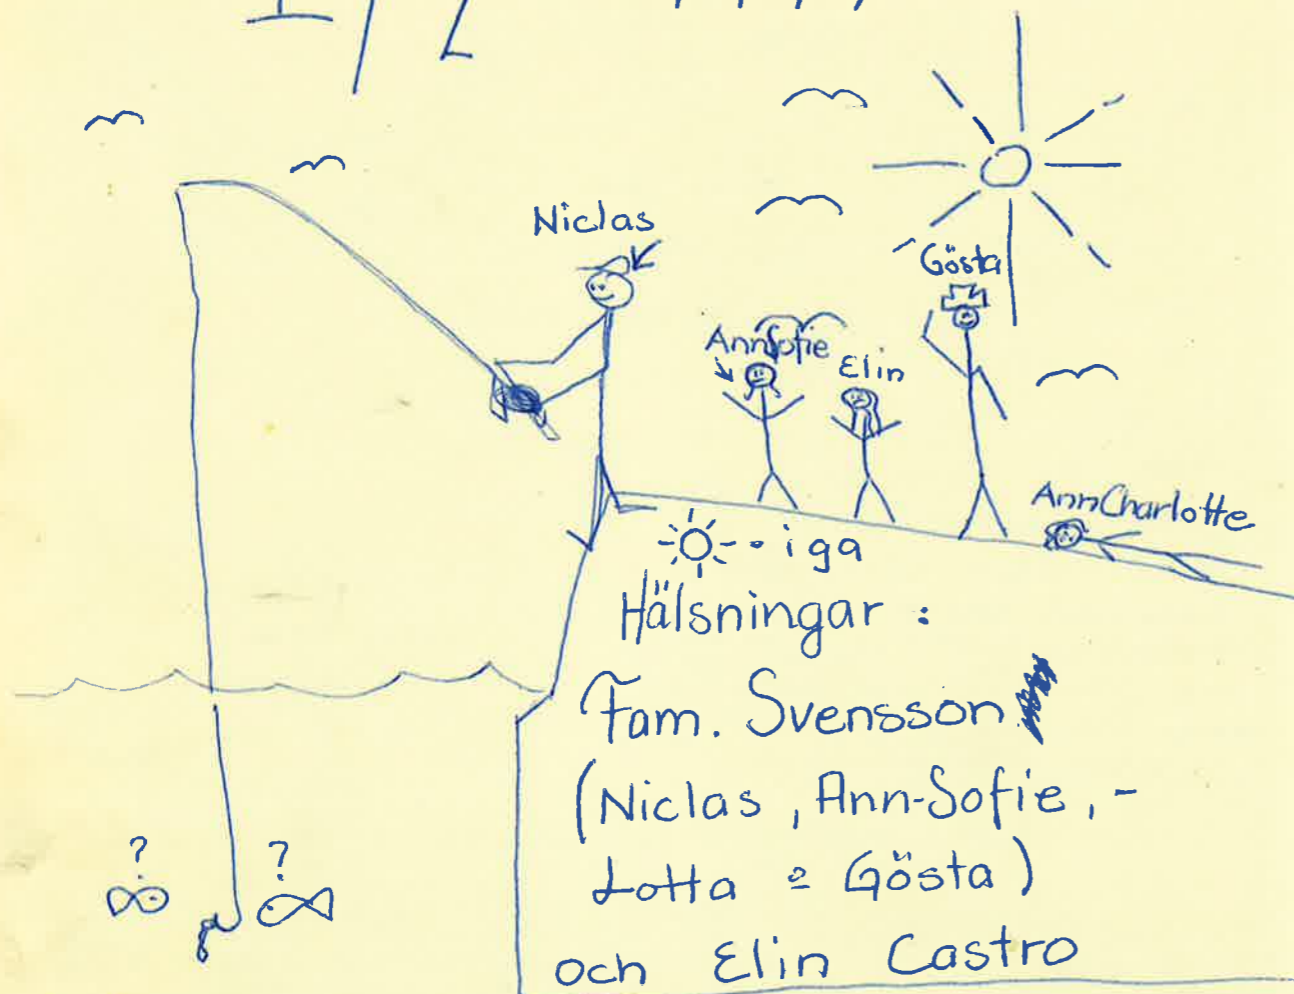 Niclas
Gösta
AnnSofie
Elin
AnnCharlotte
☀-iga
Hälsningar :
Fam. Svensson
(Niclas, Ann-Sofie, -
Lotta o Gösta)
och Elin Castro
?
?